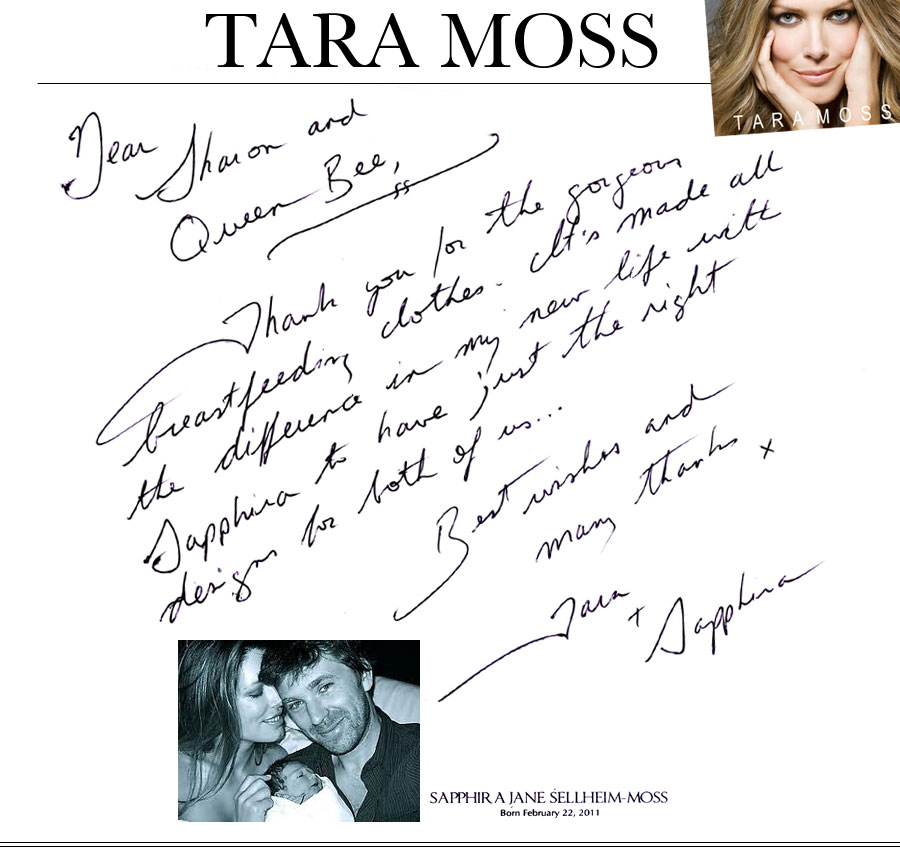 TARA MOSS
TARAMOSS
Dear Sharon and
Queen Bee,
Thank you for the gorgeous
breastfeeding clothes. It's made all
the difference in my new life with
Sapphira to have just the right
designs for both of us...
Best wishes and
many thanks x
Tara + Sapphira
SAPPHIRA JANE SELLHEIM-MOSS
Born February 22, 2011